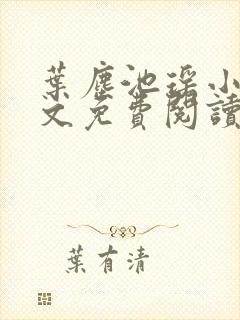 葉塵池瑶小
文免費閱讀
葉有清